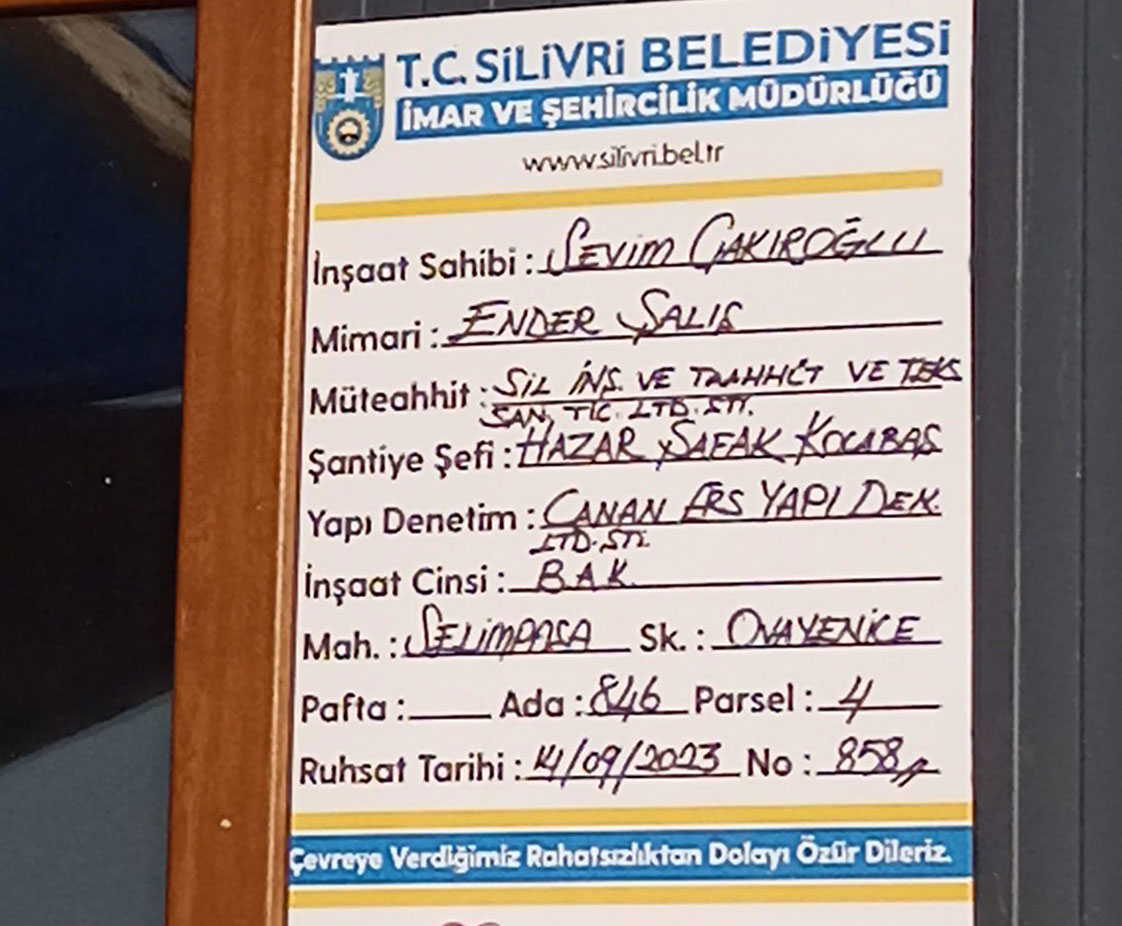 T.C. SİLİVRİ BELEDİYESİ
İMAR VE ŞEHİRCİLİK MÜDÜRLÜĞÜ
www.silivri.bel.tr
İnşaat Sahibi : SEVİM ÇAKIROĞLU
Mimari : ENDER ŞALIŞ
Müteahhit : SİL İNŞ. VE TAAHHÜT VE TEKS
SAN. TİC. LTD. ŞTİ.
Şantiye Şefi : HAZAR ŞAFAK KOCABAŞ
Yapı Denetim : CANAN ERS YAPI DEN.
LTD. ŞTİ.
İnşaat Cinsi : B.A.K.
Mah. : SELİMPAŞA Sk. : OVAYENİCE
Pafta : Ada : 846 Parsel : 4
Ruhsat Tarihi : 14/09/2023 No : 858
Çevreye Verdiğimiz Rahatsızlıktan Dolayı Özür Dileriz.